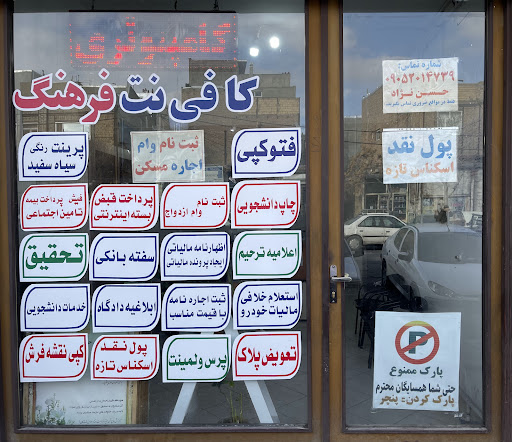 کامپیوتری
کافی نت فرهنگ
ثبت نام وام
اجاره مسکن
فتوکپی
پرینت رنگی
سیاه سفید
فیش پرداخت بیمه
تامین اجتماعی
پرداخت قبض
بسته اینترنتی
ثبت نام
وام ازدواج
چاپ دانشجویی
تحقیق
سفته بانکی
اظهارنامه مالیاتی
ایجاد پرونده مالیاتی
اعلامیه ترحیم
خدمات دانشجویی
ابلاغیه دادگاه
ثبت اجاره نامه
با قیمت مناسب
استعلام خلافی
مالیات خودرو
کپی نقشه فرش
پول نقد
اسکناس تازه
پرس و لمینت
تعویض پلاک
شماره تماس:
۰۹۰۵۳۰۱۴۷۳۹
حسن نژاد
فقط در مواقع ضروری تماس بگیرید
پول نقد
اسکناس تازه
P
پارک ممنوع
حتی شما همسایگان محترم
پارک کردن= پنچر